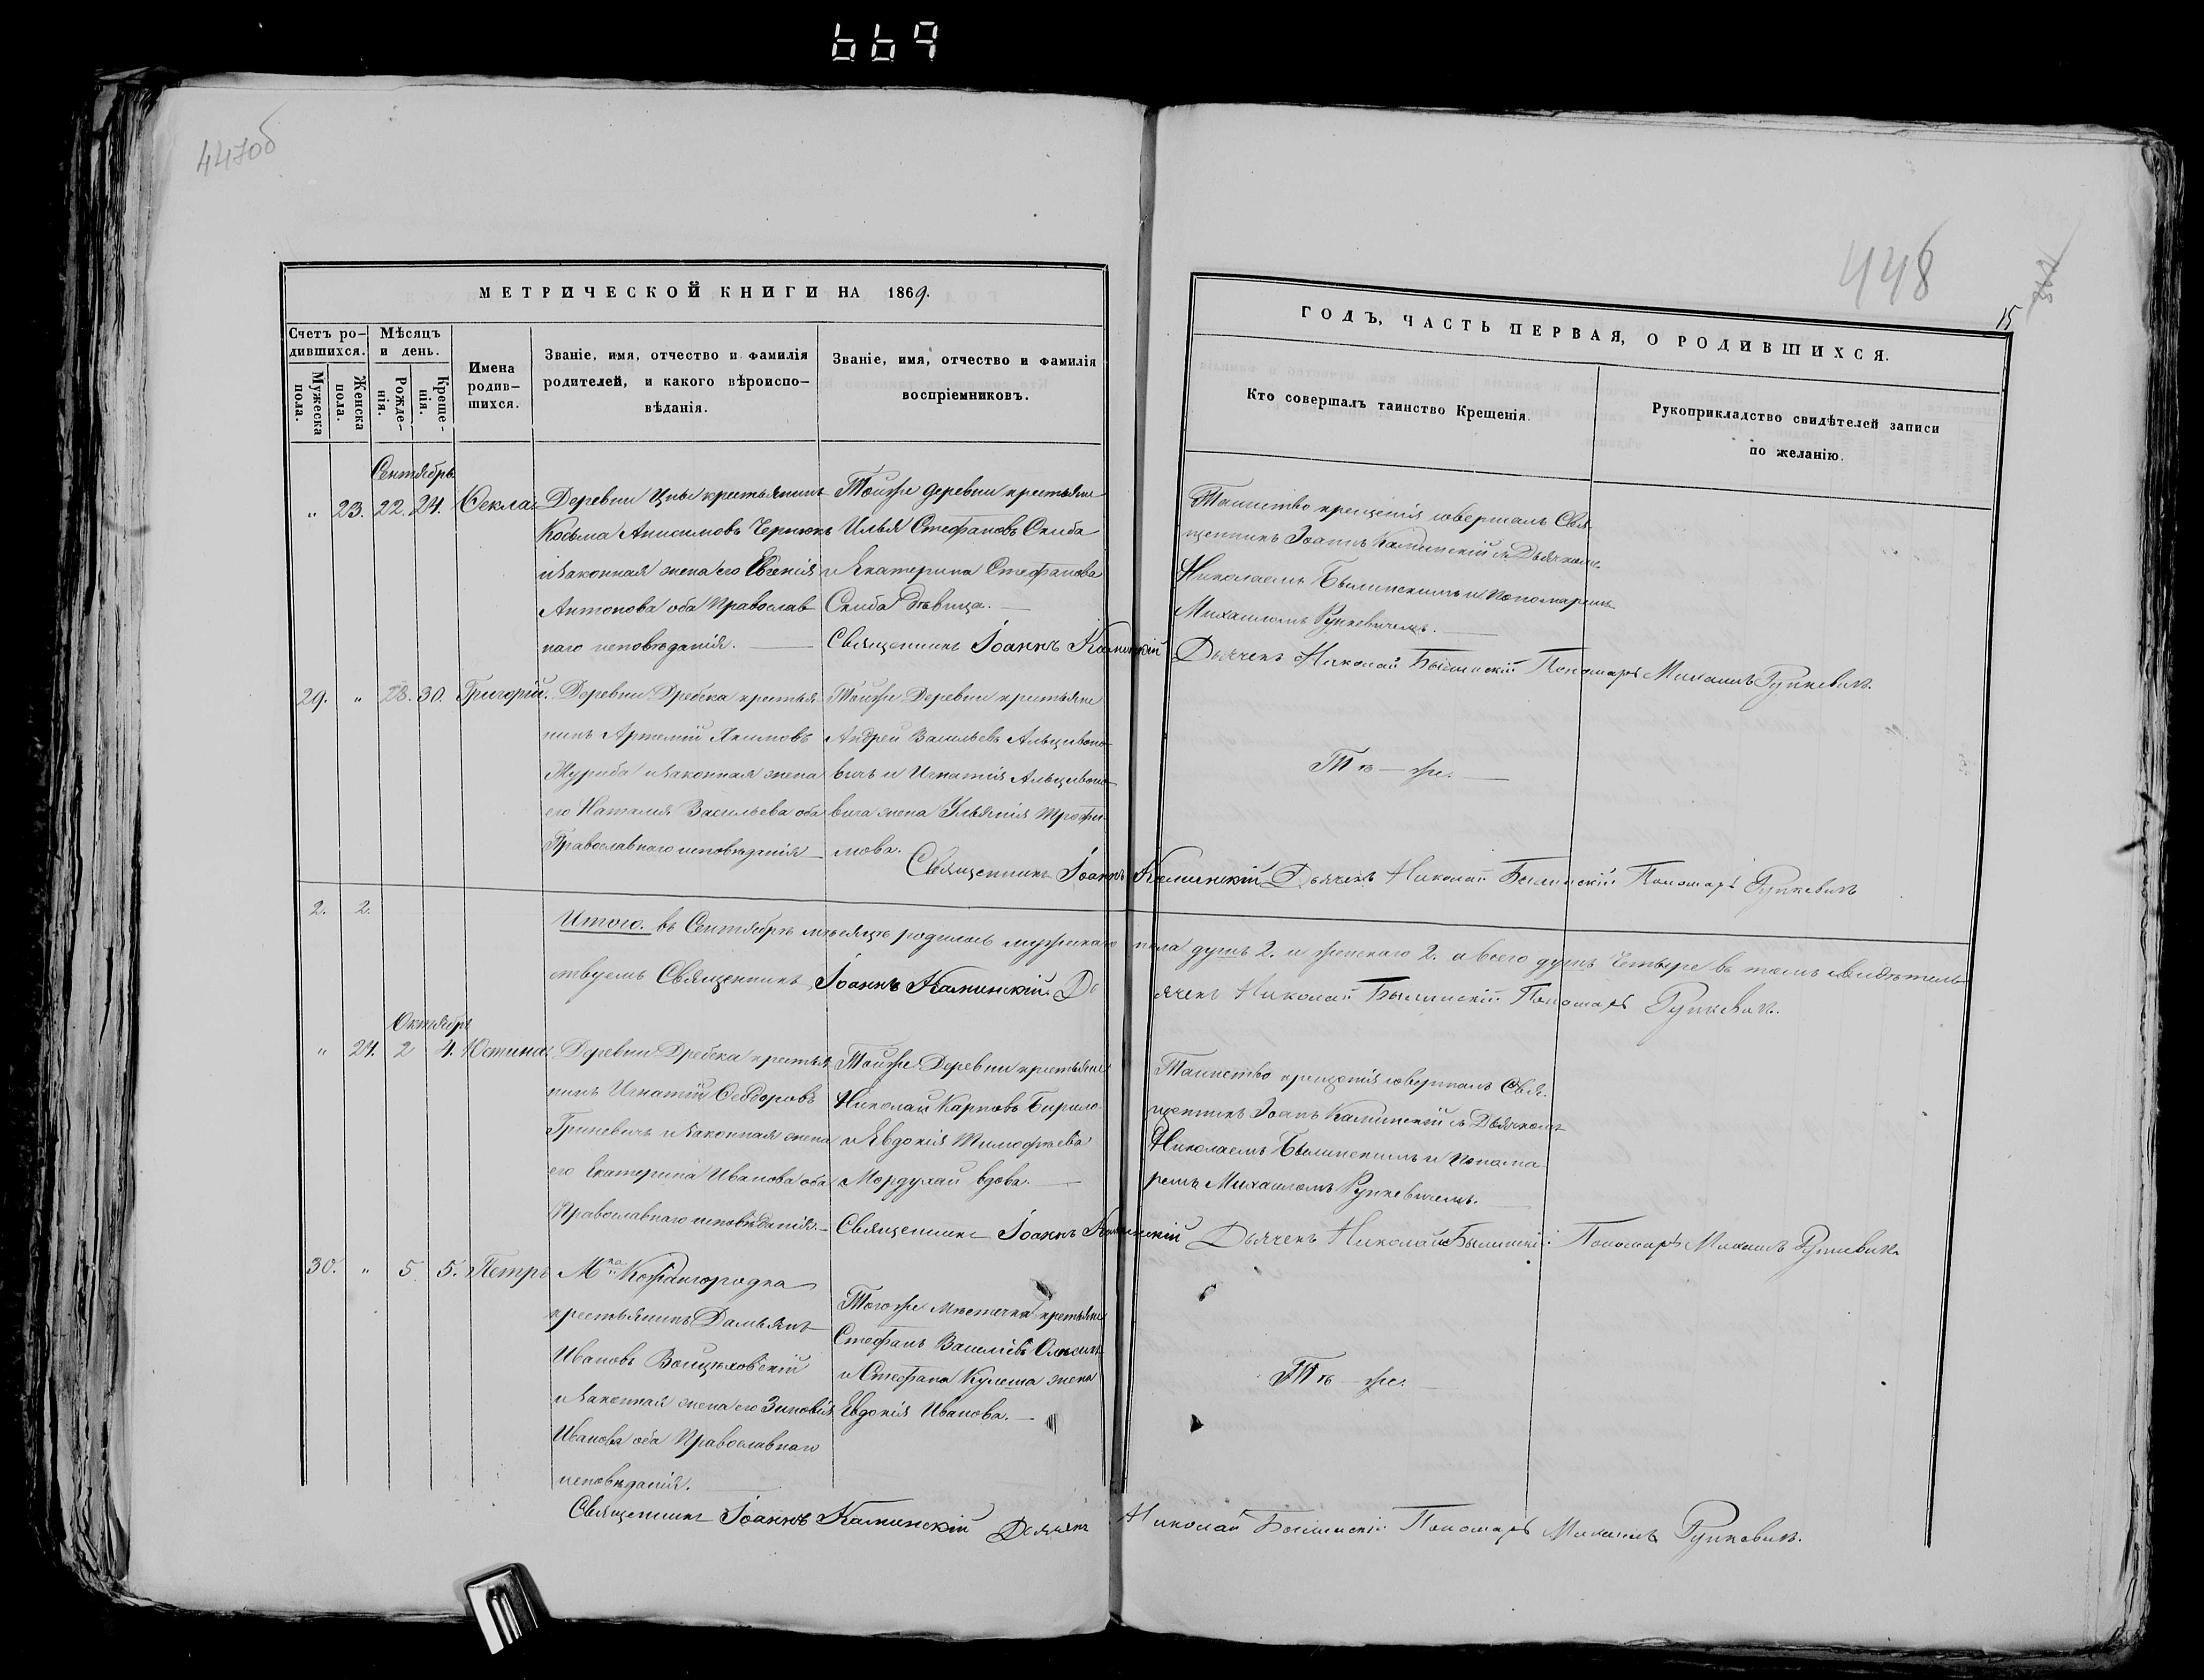 669
447об
448
15
МЕТРИЧЕСКОЙ КНИГИ НА 1869.
Счетъ ро-
дившихся.
Мѣсяцъ
и день.
Мужеска
пола.
Женска
пола.
Рожде-
нія.
Креще-
нія.
Имена
родив-
шихся.
Званіе, имя, отчество и фамилія
родителей, и какого вѣроиспо-
вѣданія.
Званіе, имя, отчество и фамилія
воспріемниковъ.
ГОДЪ, ЧАСТЬ ПЕРВАЯ, О РОДИВШИХСЯ.
Кто совершалъ таинство Крещенія.
Рукоприкладство свидѣтелей записи
по желанію.
Сентябрь
" 23. 22. 24. Ѳекла
Деревни Цны крестьянинъ
Косьма Анисимовъ Чернюкъ
и законная жена его Евгенія
Антонова оба Православ
наго исповѣданія.
Тойже деревни крестьяне
Илья Стефановъ Скиба
и Екатерина Стефанова
Скиба дѣвица.
Священникъ Іоаннъ Каминскій
Таинство крещенія совершалъ Свя-
щенникъ Іоаннъ Каминскій съ Дьячкомъ
Николаемъ Былинскимъ и Пономаремъ
Михаиломъ Рункевичемъ.
Дьячекъ Николай Былинскій Пономарь Михаилъ Рункевичъ.
29. " 28. 30. Григорій.
Деревни Дребска крестья
нинъ Артемій Якимовъ
Журиба и законная жена
его Наталия Васильева оба
Православнаго исповѣданія
Тойже Деревни крестьяне
Андрей Васильевъ Альцивоно-
вичъ и Игнатія Альцивоно-
вича жена Ульянія Трофи-
мова.
Тѣ-же.
Священникъ Іоаннъ Каминскій Дьячекъ Николай Былинскій Пономарь Рункевичъ
2. 2.
Итого. въ Сентябрѣ мѣсяцѣ родилось мужескаго пола душъ 2. и женскаго 2. а всего душъ четыре въ томъ свидѣтель-
ствуемъ Священникъ Іоаннъ Каминскій Дьячекъ Николай Былинскій Пономарь Рункевичъ.
Октябрь
" 24. 2 4. Юстина
Деревни Дребска крестья
нинъ Игнатій Ѳеодоровъ
Гриневичъ и законная жена
его Екатерина Иванова оба
Православнаго исповѣданія.
Тойже Деревни крестьяне
Николай Карповъ Бирило
и Евдокія Тимофѣева
Мордухай вдова.
Священникъ Іоаннъ Каминскій
Таинство крещенія совершалъ Свя-
щенникъ Іоаннъ Каминскій съ Дьячкомъ
Николаемъ Былинскимъ и Понома-
ремъ Михаиломъ Рункевичемъ.
Дьячекъ Николай Былинскій Пономарь Михаилъ Рункевичъ
30. " 5 5. Петръ
М-ка Кожангородка
крестьянинъ Дамьянъ
Ивановъ Войцѣховскій
и законная жена его Зиновія
Иванова оба Православнаго
исповѣданія.
Того же мѣстечка крестьяне
Стефанъ Василіевъ
и Стефана Кулеша жена
Евдокія Иванова.
Тѣ-же.
Священникъ Іоаннъ Каминскій Дьячекъ Николай Былинскій Пономарь Михаилъ Рункевичъ.